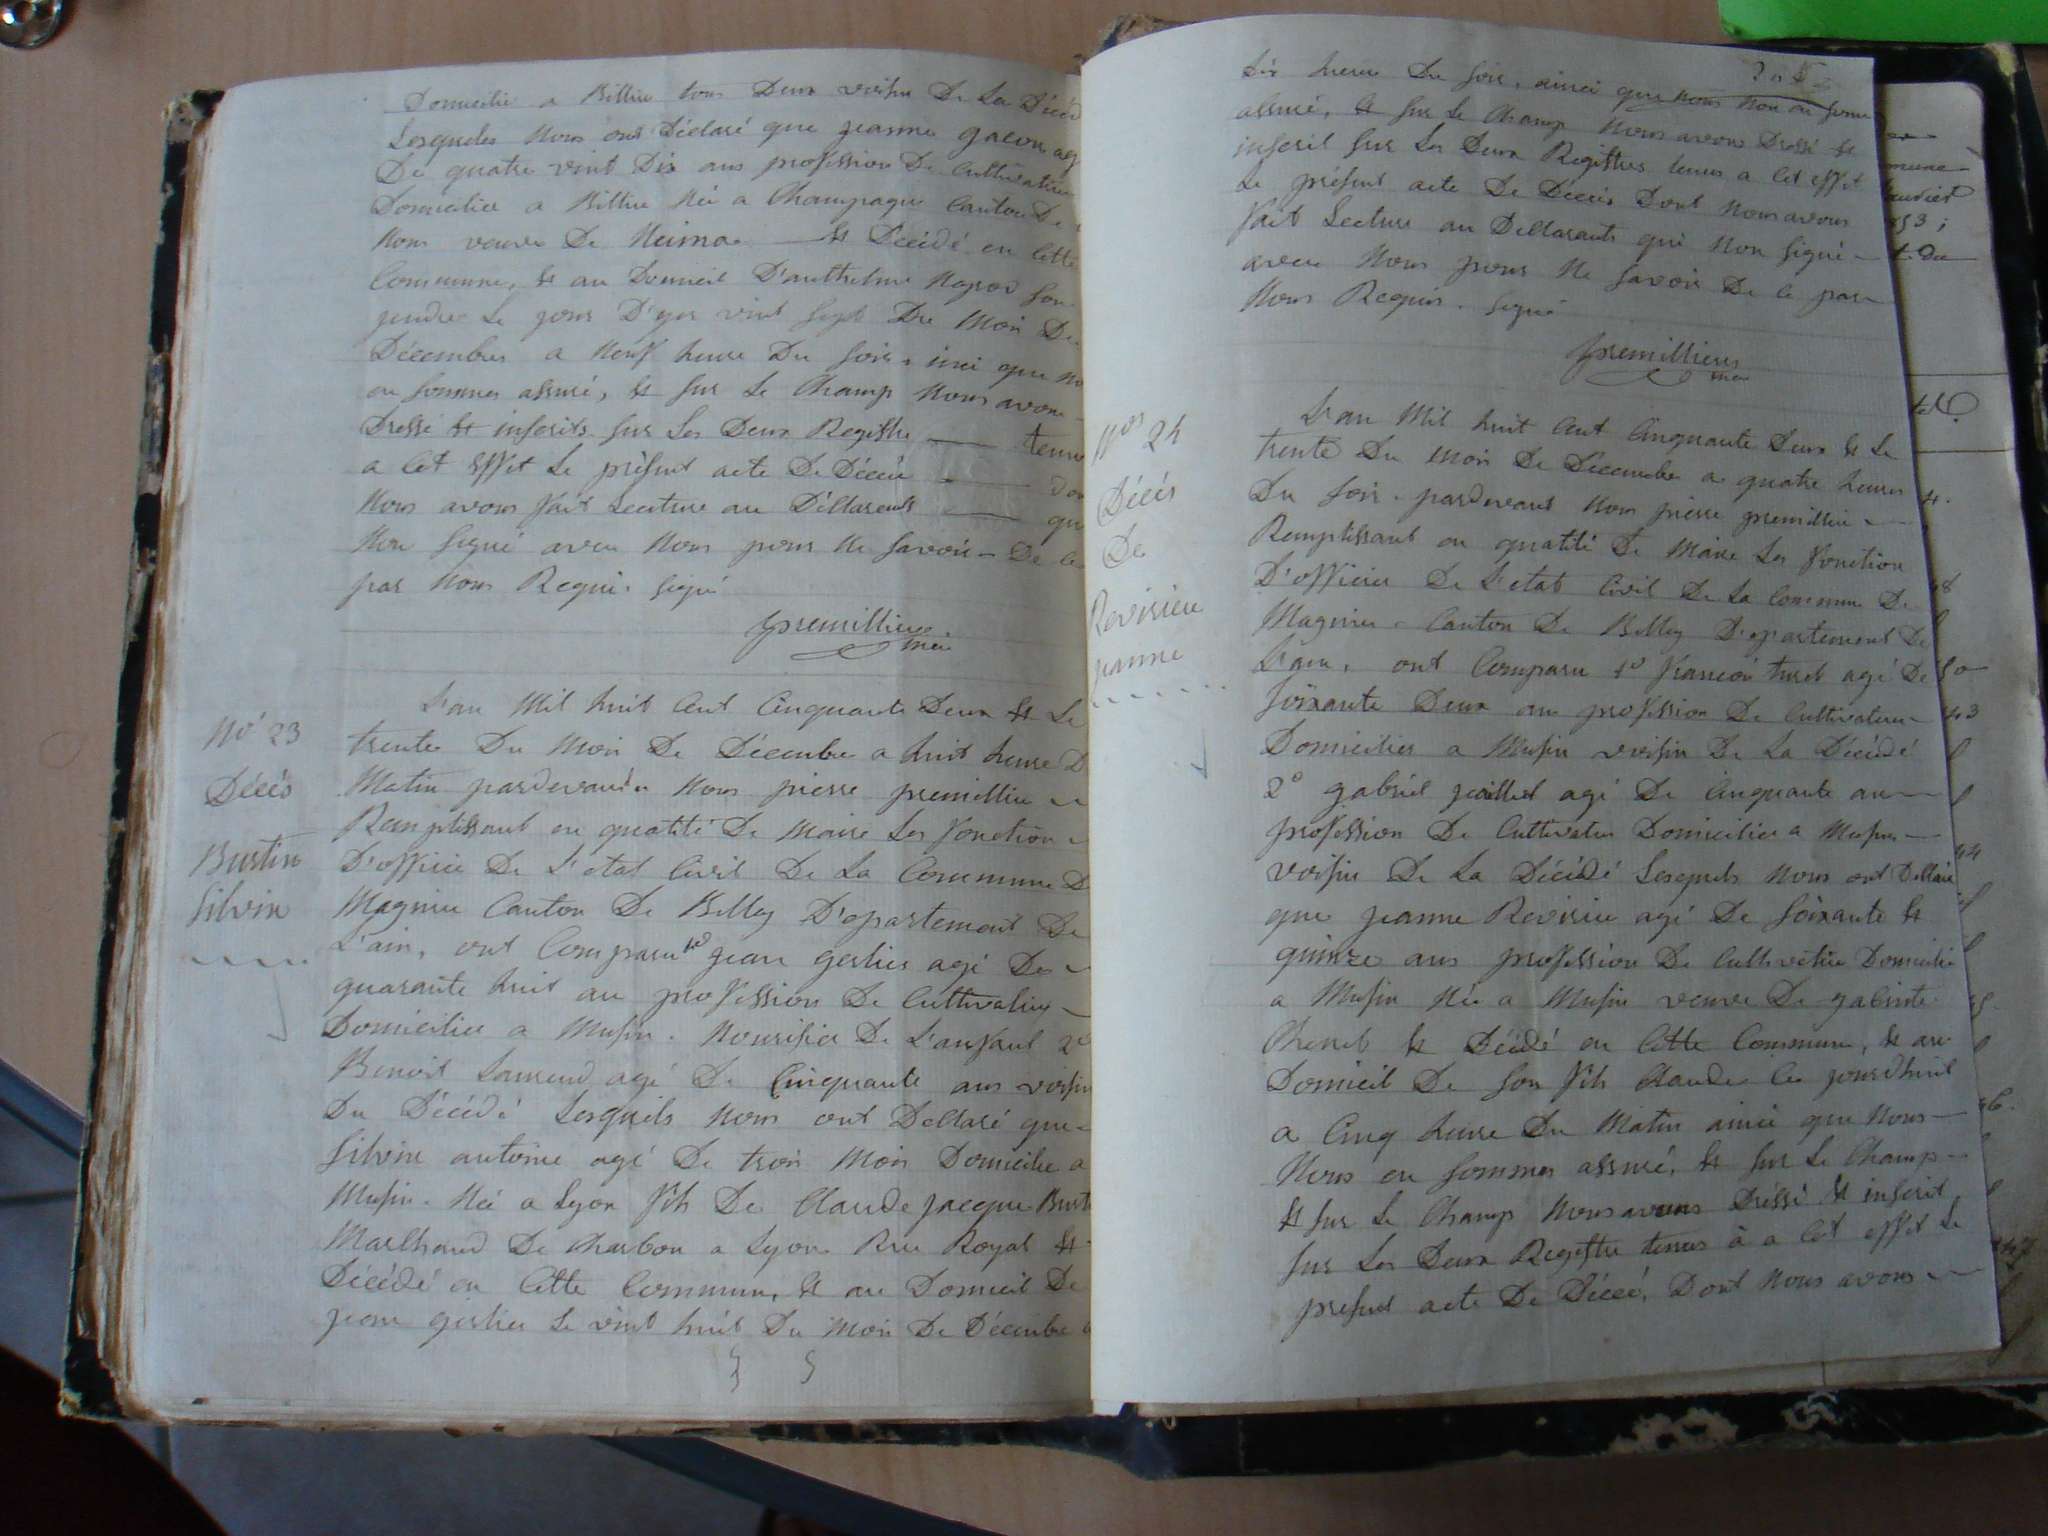 Domicilié a Billieu tous Deux voisin De La Décéd
Lesquelles Nous ont Déclaré que jeanne gacon ag
De quatre vint Dix ans profession De Cultivateur
Domicilier a Billieu Née a Champagne Canton De
Nom veuve De Neima & Décédé en Cette
Commune, & au Domicil D'anthelme
jendre Le jour D'yer vint sept Du Mois De
Décembre a Neuf heure Du soir, insi que no
en sommes assuré, & sur Le Champ Nous avons
Dressé & inscrits sur Les Deux Registre tenu
a Cet Effet Le présent acte De Décée do
Nous avons fait Lecture au Déllarents qu
Non signé avec Nous pour Ne savoir De ce
par Nous Requi. signé
premillieu
mer
No 23
Décés
Bustin
Silvin
L'an Mil huit Cent Cinquante Deux & Le
trente Du Mois De Décembre a huit heure D
Matin pardevant Nous pierre premillieu
Remplissant en qualité De Maire Les fonction
D'officier De L'etat Civil De La Commune D
Magnieu Canton De Belley D'epartement De
L'ain, ont Comparu 1o jean gerlier agé De
quarante huit an profession De Cultivateur
Domicilier a Musin. Nourisier De L'anfant 2o
Benoit Laurend agé De Cinquante ans voisin
Du Décédé Lesquels Nous ont Dellaré que
Silvin antoine agé De trois Mois Domicilié a
Musin. Née a Lyon fils De Claude jacque Bust
Marchand De Charbon a Lyon Rue Royal &
Décédé en Cette Commune, & au Domicil De
jean gerlier Le vint huit Du Mois De Décembre a
Six heure Du soir, ainsi que nous Non en some
assuré, & sur Le Champ Nous avons Dressé &
inscrit sur Les Deux Registres tenus a Cet effet
Le présent acte De Décés Dont Nous avons
fait Lecture au Dellarants qui Non signé
avec Nous pour Ne savoir De ce par
Nous Requis. signé
premillieu
mer
Nos 24
Décés
De
Revirieu
jeanne
L'an Mil huit Cent Cinquante Deux & Le
trente Du Mois De Décembre a quatre heures
Du soir. pardevant Nous pierre premillieu
Remplissant en qualité De Maire Les fonction
D'officier De L'etat Civil De La Commune De
Magnieu Canton De Belley D'epartement De
L'ain, ont Comparu 1o françois turet agé De
soixante Deux an profession De Cultivateur
Domicilier a Musin voisin De La Décédé
2o gabriel jaillet agé De Cinquante an
profession De Cultivateur Domicilier a Musin
voisin De La Décédé Lesquels Nous ont Dellaré
que jeanne Revirieu agé De soixante &
quinze ans profession De Cultivatrice Domicilié
a Musin Née a Musin veuve De
& Décédé en Cette Commune, & au
Domicil De son fils Claude Ce jourdhuit
a Cinq heure Du Matin ainsi que Nous
Nous en sommes assuré, & sur Le Champ
& sur Le Champ Nous avons Dréssé & inscrit
sur Les Deux Registre tenus à a Cet effet Le
présent acte De Décée, Dont Nous avons